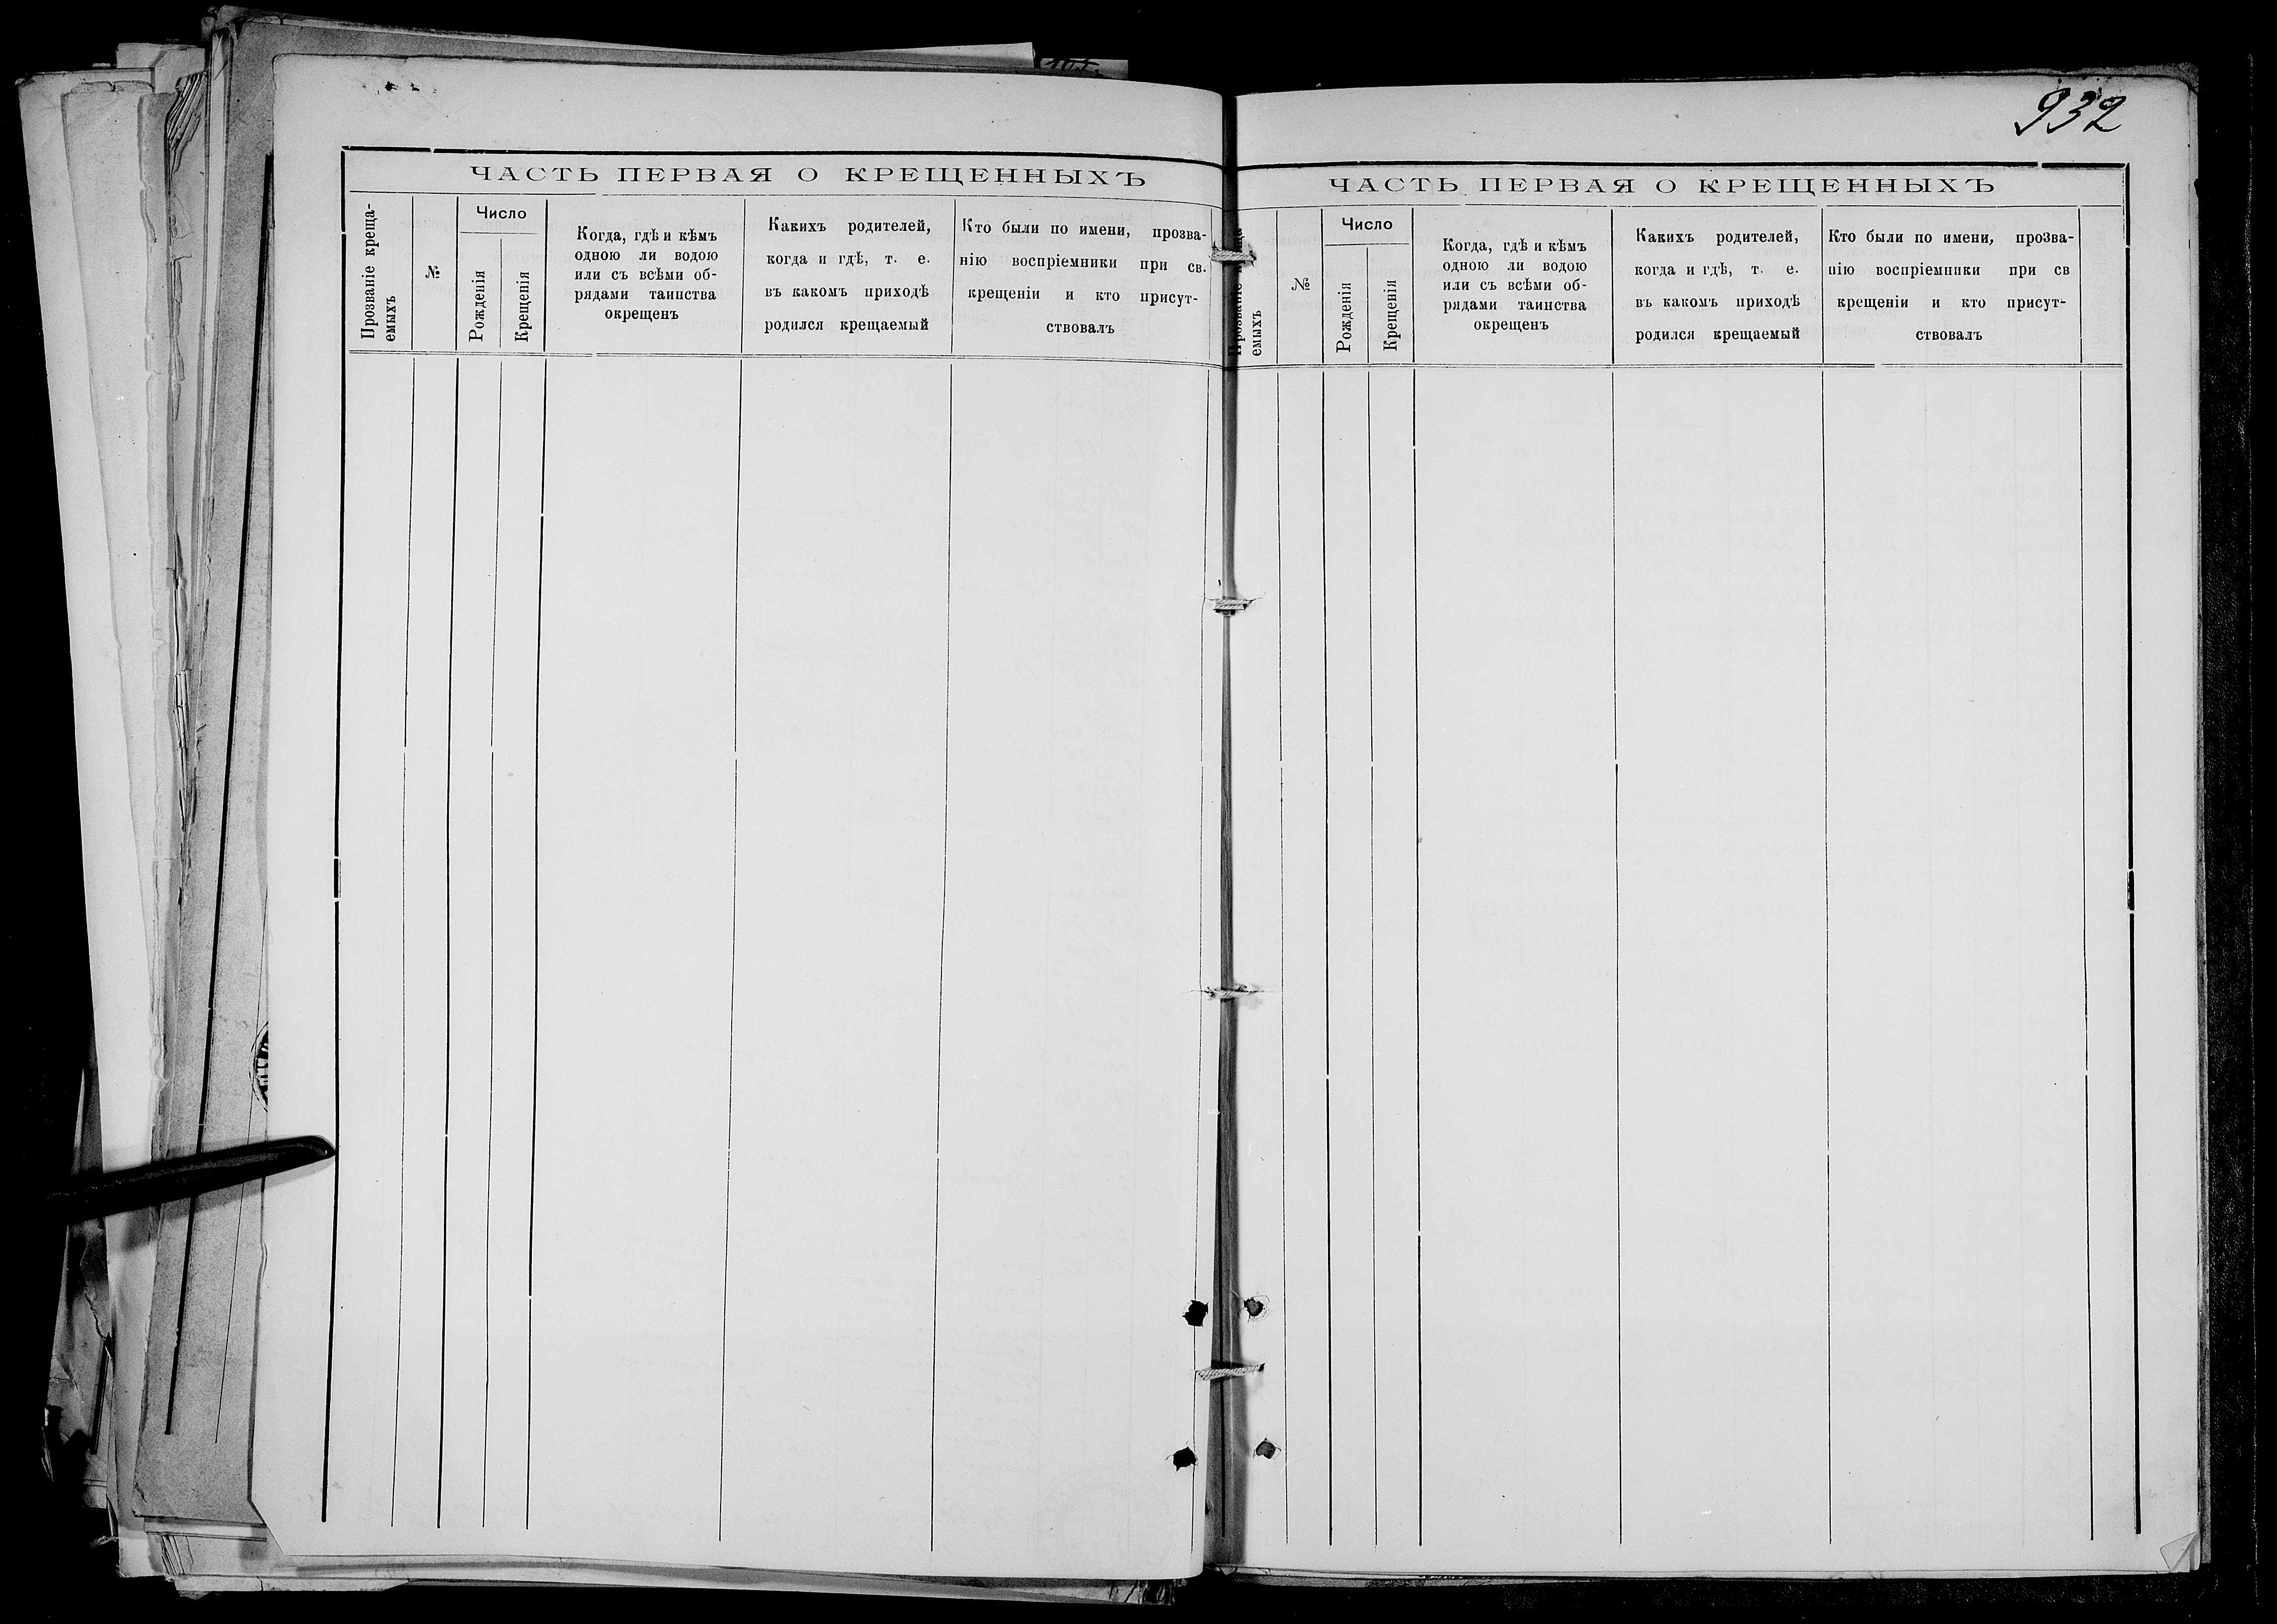 ЧАСТЬ ПЕРВАЯ О КРЕЩЕННЫХЪ
Прозваніе креща-
емыхъ
№
Число
Рожденія
Крещенія
Когда, гдѣ и кѣмъ
одною ли водою
или съ всѣми об-
рядами таинства
окрещенъ
Какихъ родителей,
когда и гдѣ, т. е.
въ какомъ приходѣ
родился крещаемый
Кто были по имени, прозва-
нію воспріемники при св.
крещеніи и кто присут-
ствовалъ
932
ЧАСТЬ ПЕРВАЯ О КРЕЩЕННЫХЪ
Прозваніе
емыхъ
№
Число
Рожденія
Крещенія
Когда, гдѣ и кѣмъ
одною ли водою
или съ всѣми об-
рядами таинства
окрещенъ
Какихъ родителей,
когда и гдѣ, т. е.
въ какомъ приходѣ
родился крещаемый
Кто были по имени, прозва-
нію воспріемники при св
крещеніи и кто присут-
ствовалъ